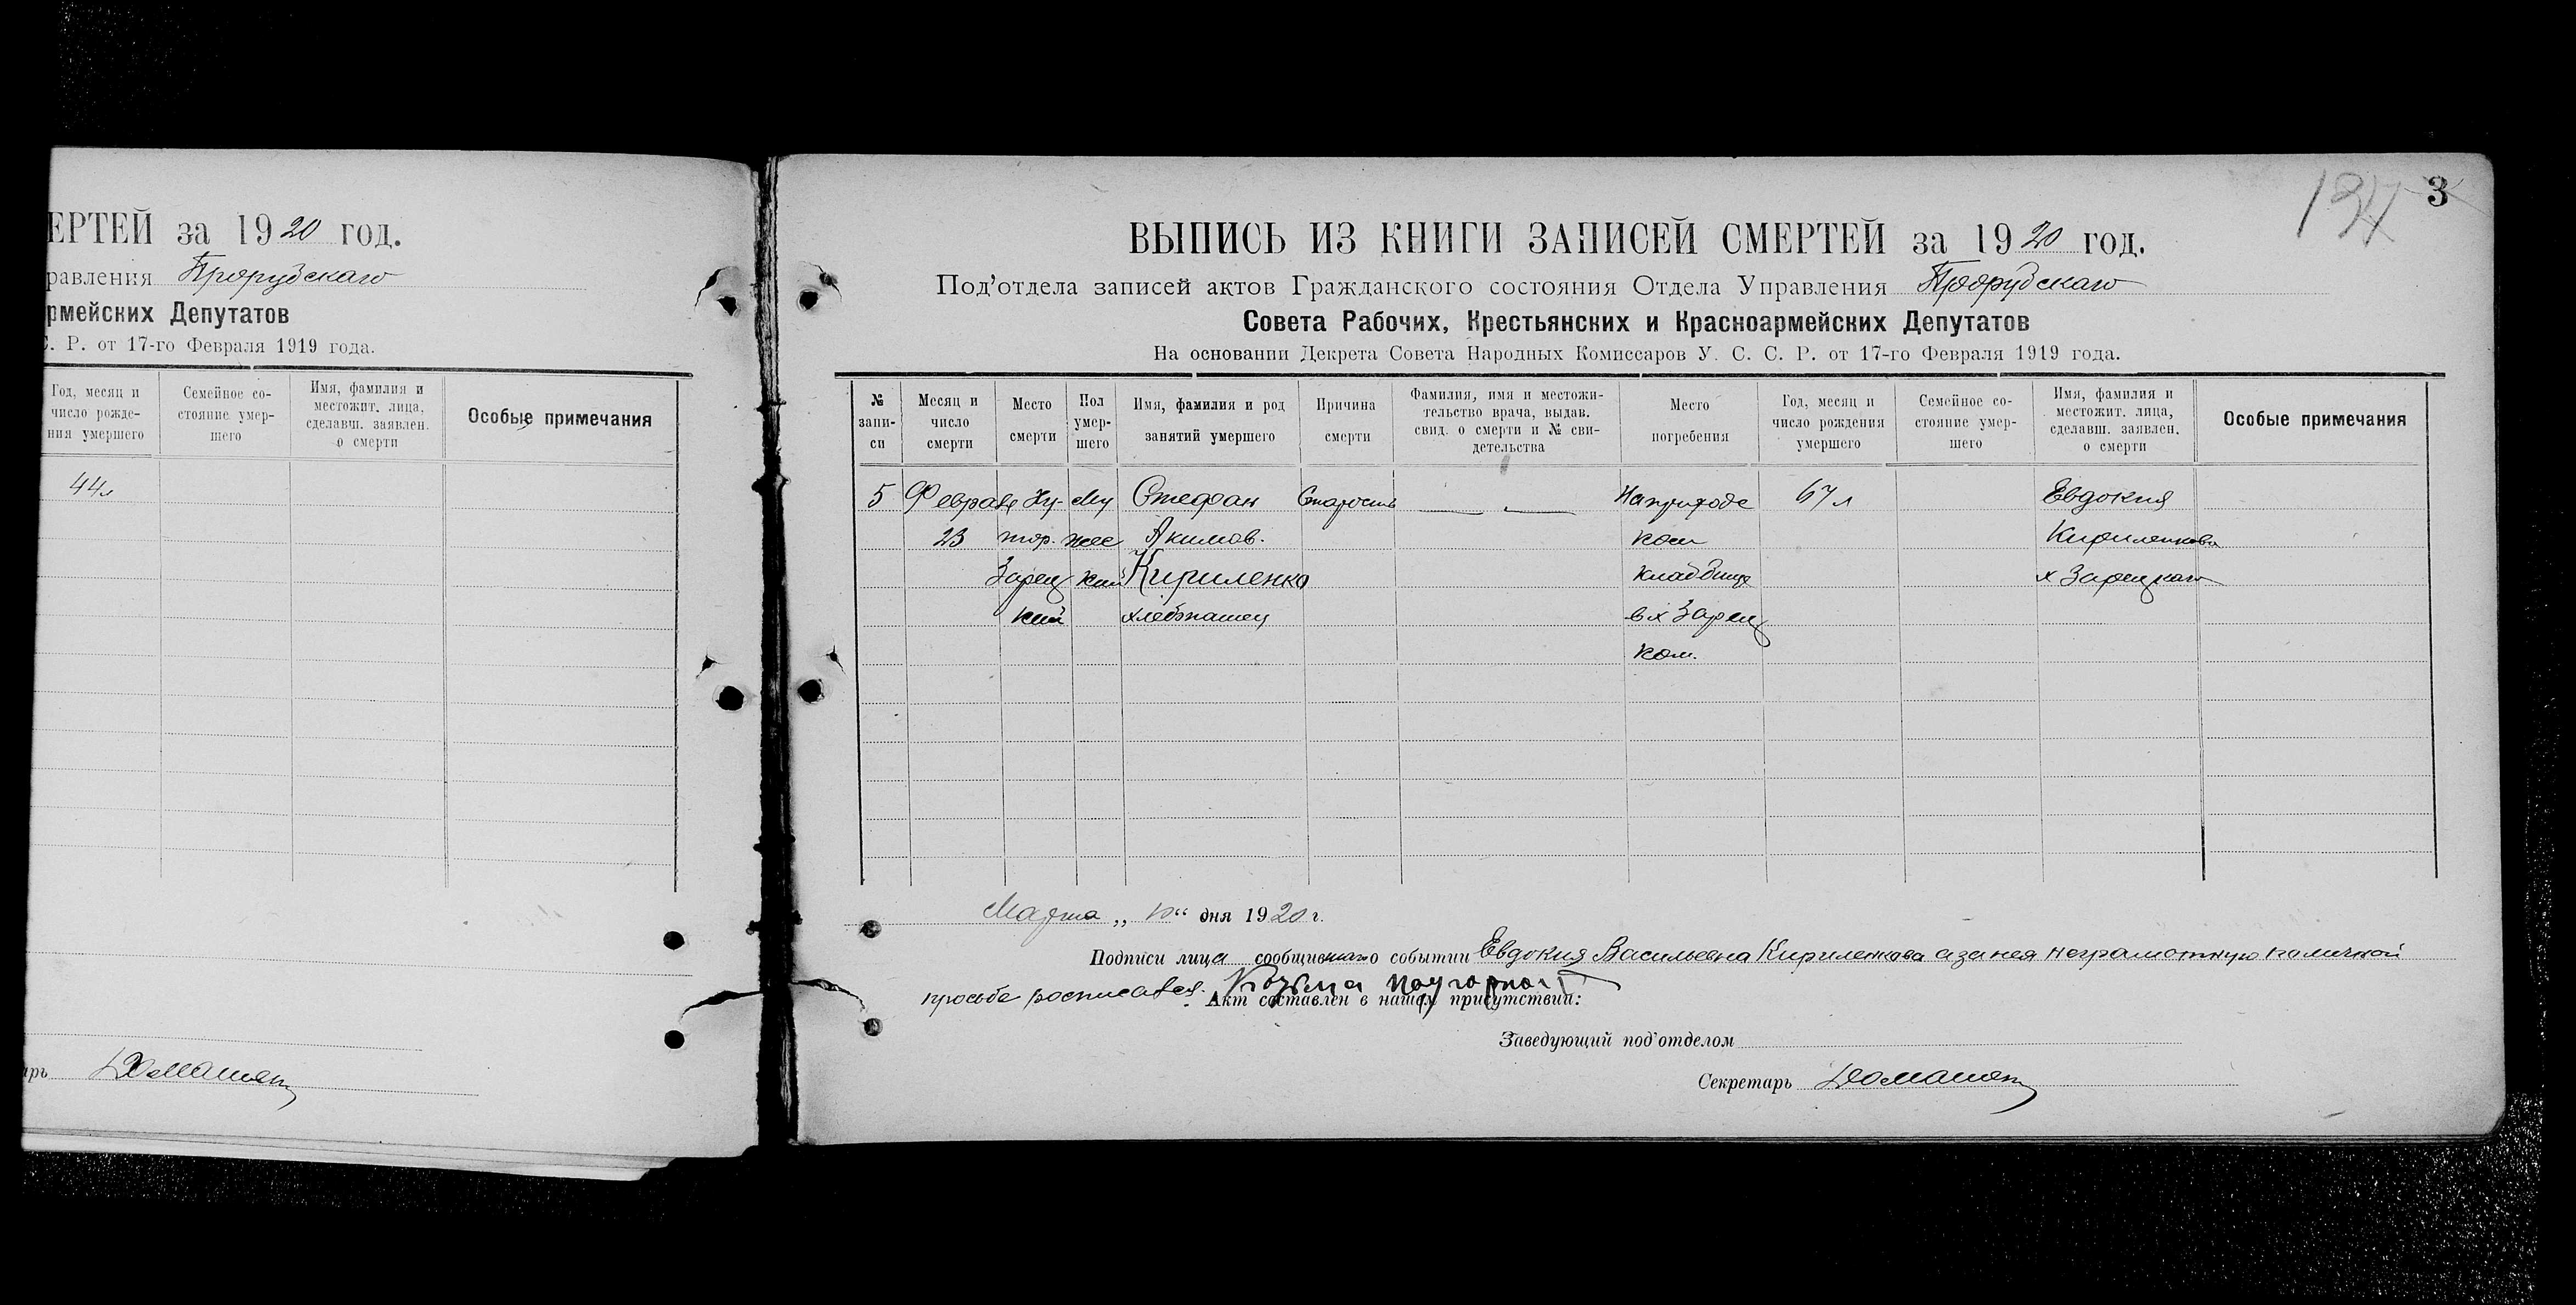 ЕРТЕЙ за 1920 год.
равления Прорубскаго
рмейских Депутатов
С. Р. от 17-го Февраля 1919 года.
Год, месяц и число рожде- ния умершего
Семейное со- стояние умер- шего
Имя, фамилия и местожит. лица, сделавш. заявлен. о смерти
Особые примечания
44 л
арь Домашенц
134 3
ВЫПИСЬ ИЗ КНИГИ ЗАПИСЕЙ СМЕРТЕЙ за 1920 год.
Под'отдела записей актов Гражданского состояния Отдела Управления Прорубскаго
Совета Рабочих, Крестьянских и Красноармейских Депутатов
На основании Декрета Совета Народных Комиссаров У. С. С. Р. от 17-го Февраля 1919 года.
№ запи- си
Месяц и число смерти
Место смерти
Пол умер- шего
Имя, фамилия и род занятий умершего
Причина смерти
Фамилия, имя и местожи- тельство врача, выдав. свид. о смерти и № сви- детельства
Место погребения
Год, месяц и число рождения умершего
Семейное со- стояние умер- шего
Имя, фамилия и местожит. лица, сделавш. заявлен. о смерти
Особые примечания
5 Февраля Ху- Му Стефан Старость На приходс 67 л Евдокия
23 тор. жес Акимов. ком Кириленкова
Зарец кий Кириленко кладбище х Зарецкаго
кий хлебопашец в х Зарец
ком.
Марта „ “ дня 1920 г.
Подписи лица сообщившаго о событии Евдокия Васильевна Кириленкова а за нея неграмотную по личной
просьбе росписався. Козьма
Акт составлен в нашем присутствии:
Заведующий под'отделом
Секретарь Домашенц